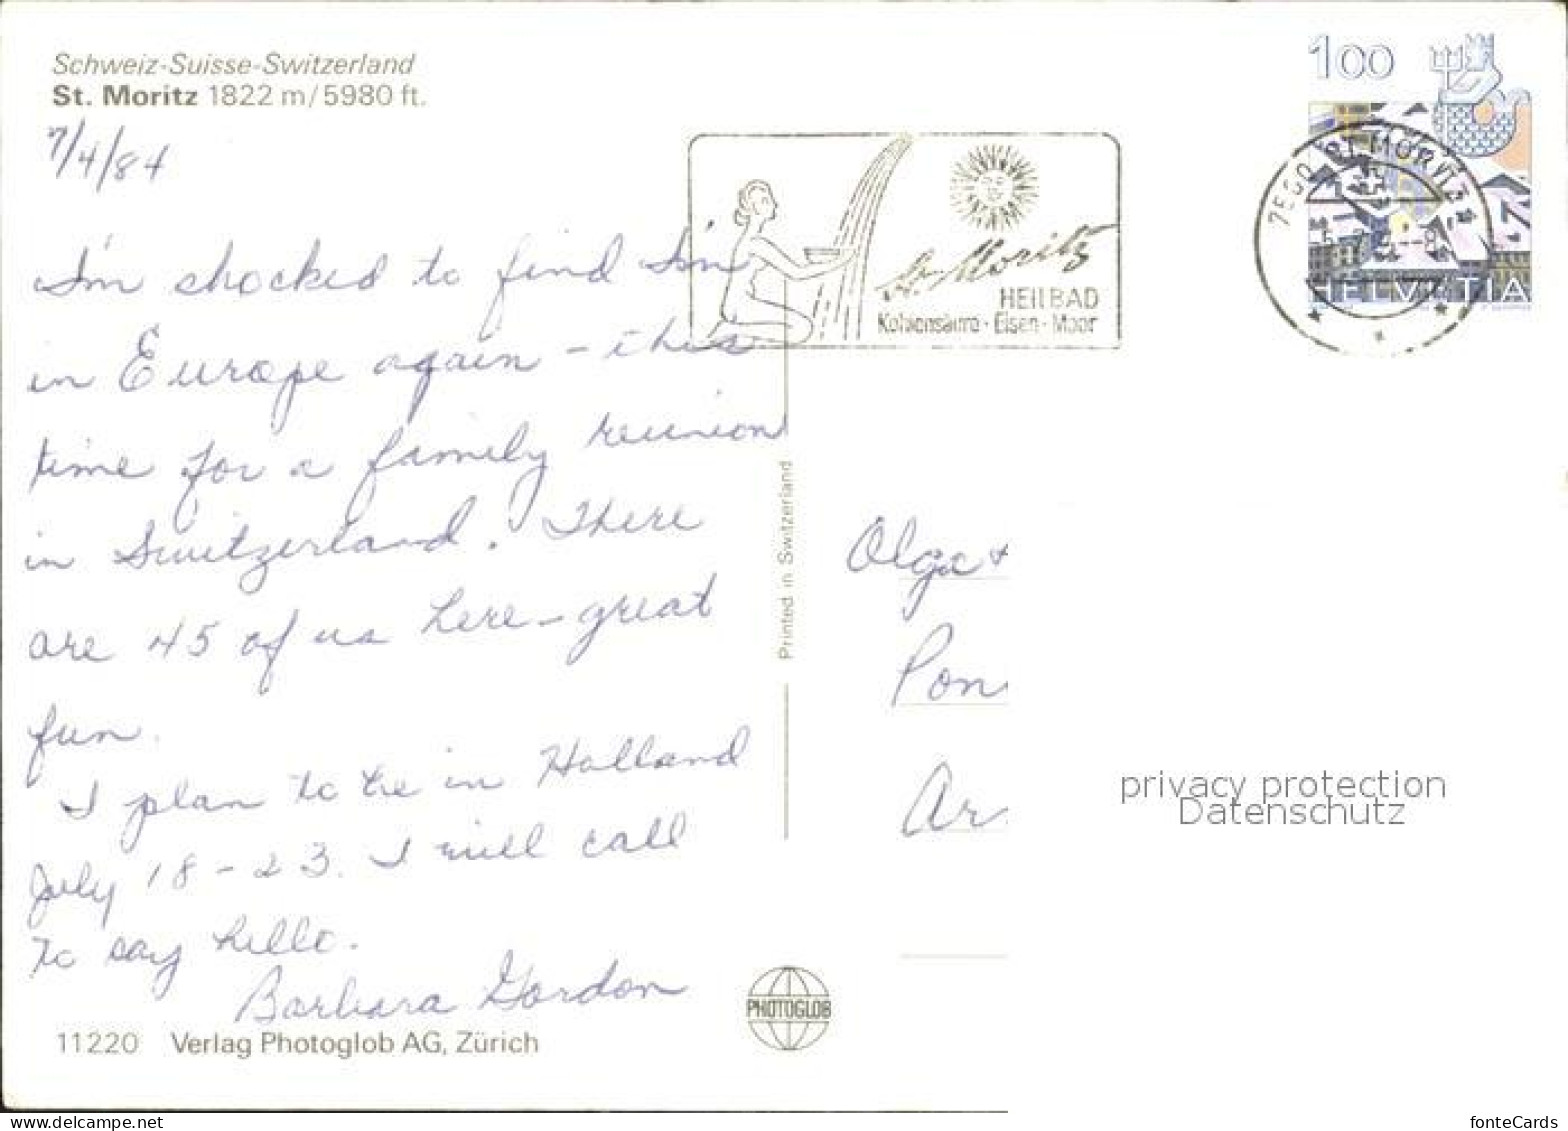 Schweiz-Suisse-Switzerland
St. Moritz 1822 m/5980 ft.
7/4/84
I'm shocked to find I'm
in Europe again - this
time for a family reunion
in Switzerland. There
are 45 of us here - great
fun.
I plan to be in Holland
July 18-23. I will call
to say hello.
Barbara Gordon
11220 Verlag Photoglob AG, Zürich
Printed in Switzerland
PHOTOGLOB
St. Moritz
HEILBAD
Kohlensäure · Eisen · Moor
100
7500 ST. MORITZ 1
HELVETIA
Olga +
Pon
Ar
privacy protection
Datenschutz
fonteCards